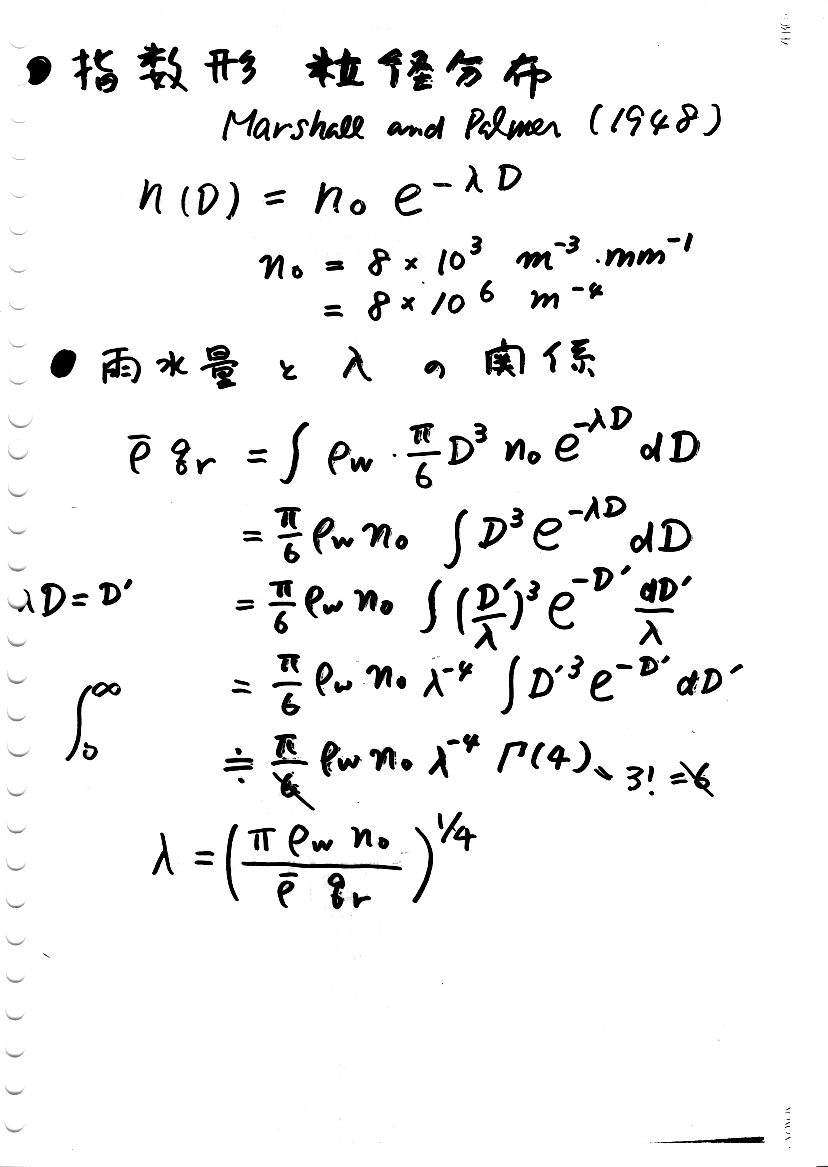 ● 指数形 粒径分布
Marshall and Palmer (1948)
n(D) = n₀ e^{-λD}
n₀ = 8 × 10³ m⁻³·mm⁻¹
= 8 × 10⁶ m⁻⁴
● 雨水量 と λ の 関係
ρ̄ qr = ∫ ρw · π/6 D³ n₀ e^{-λD} dD
= π/6 ρw n₀ ∫ D³ e^{-λD} dD
λD = D′ = π/6 ρw n₀ ∫ (D′/λ)³ e^{-D′} dD′/λ
= π/6 ρw n₀ λ⁻⁴ ∫ D′³ e^{-D′} dD′
∫₀^∞
≒ π/6 ρw n₀ λ⁻⁴ Γ(4) 3! = 6
λ = (π ρw n₀ / ρ̄ qr)^{1/4}